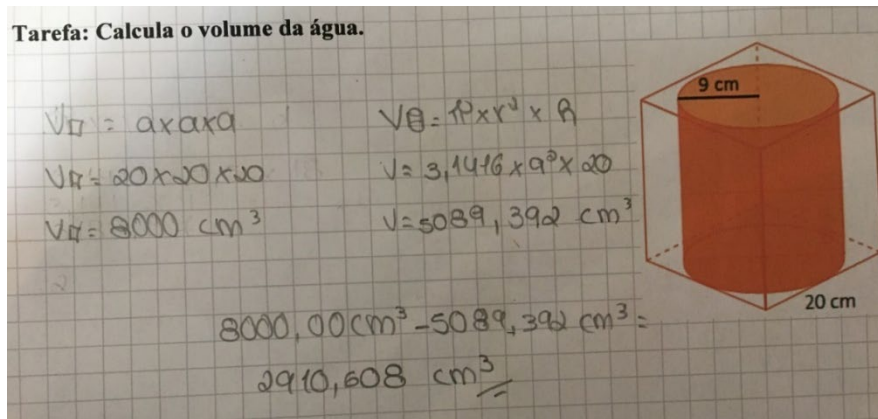 Tarefa: Calcula o volume da água.
9 cm
V□ = axaxa
V□ = 20x20x20
V□ = 8000 cm³
V = π x r² x h
V = 3,1416 x 9² x 20
V = 5089,392 cm³
20 cm
8000,00 cm³ - 5089,392 cm³ =
2910,608 cm³